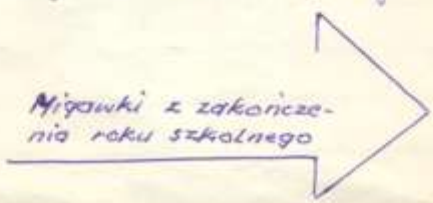 Migawki z zakończe-
nia roku szkolnego